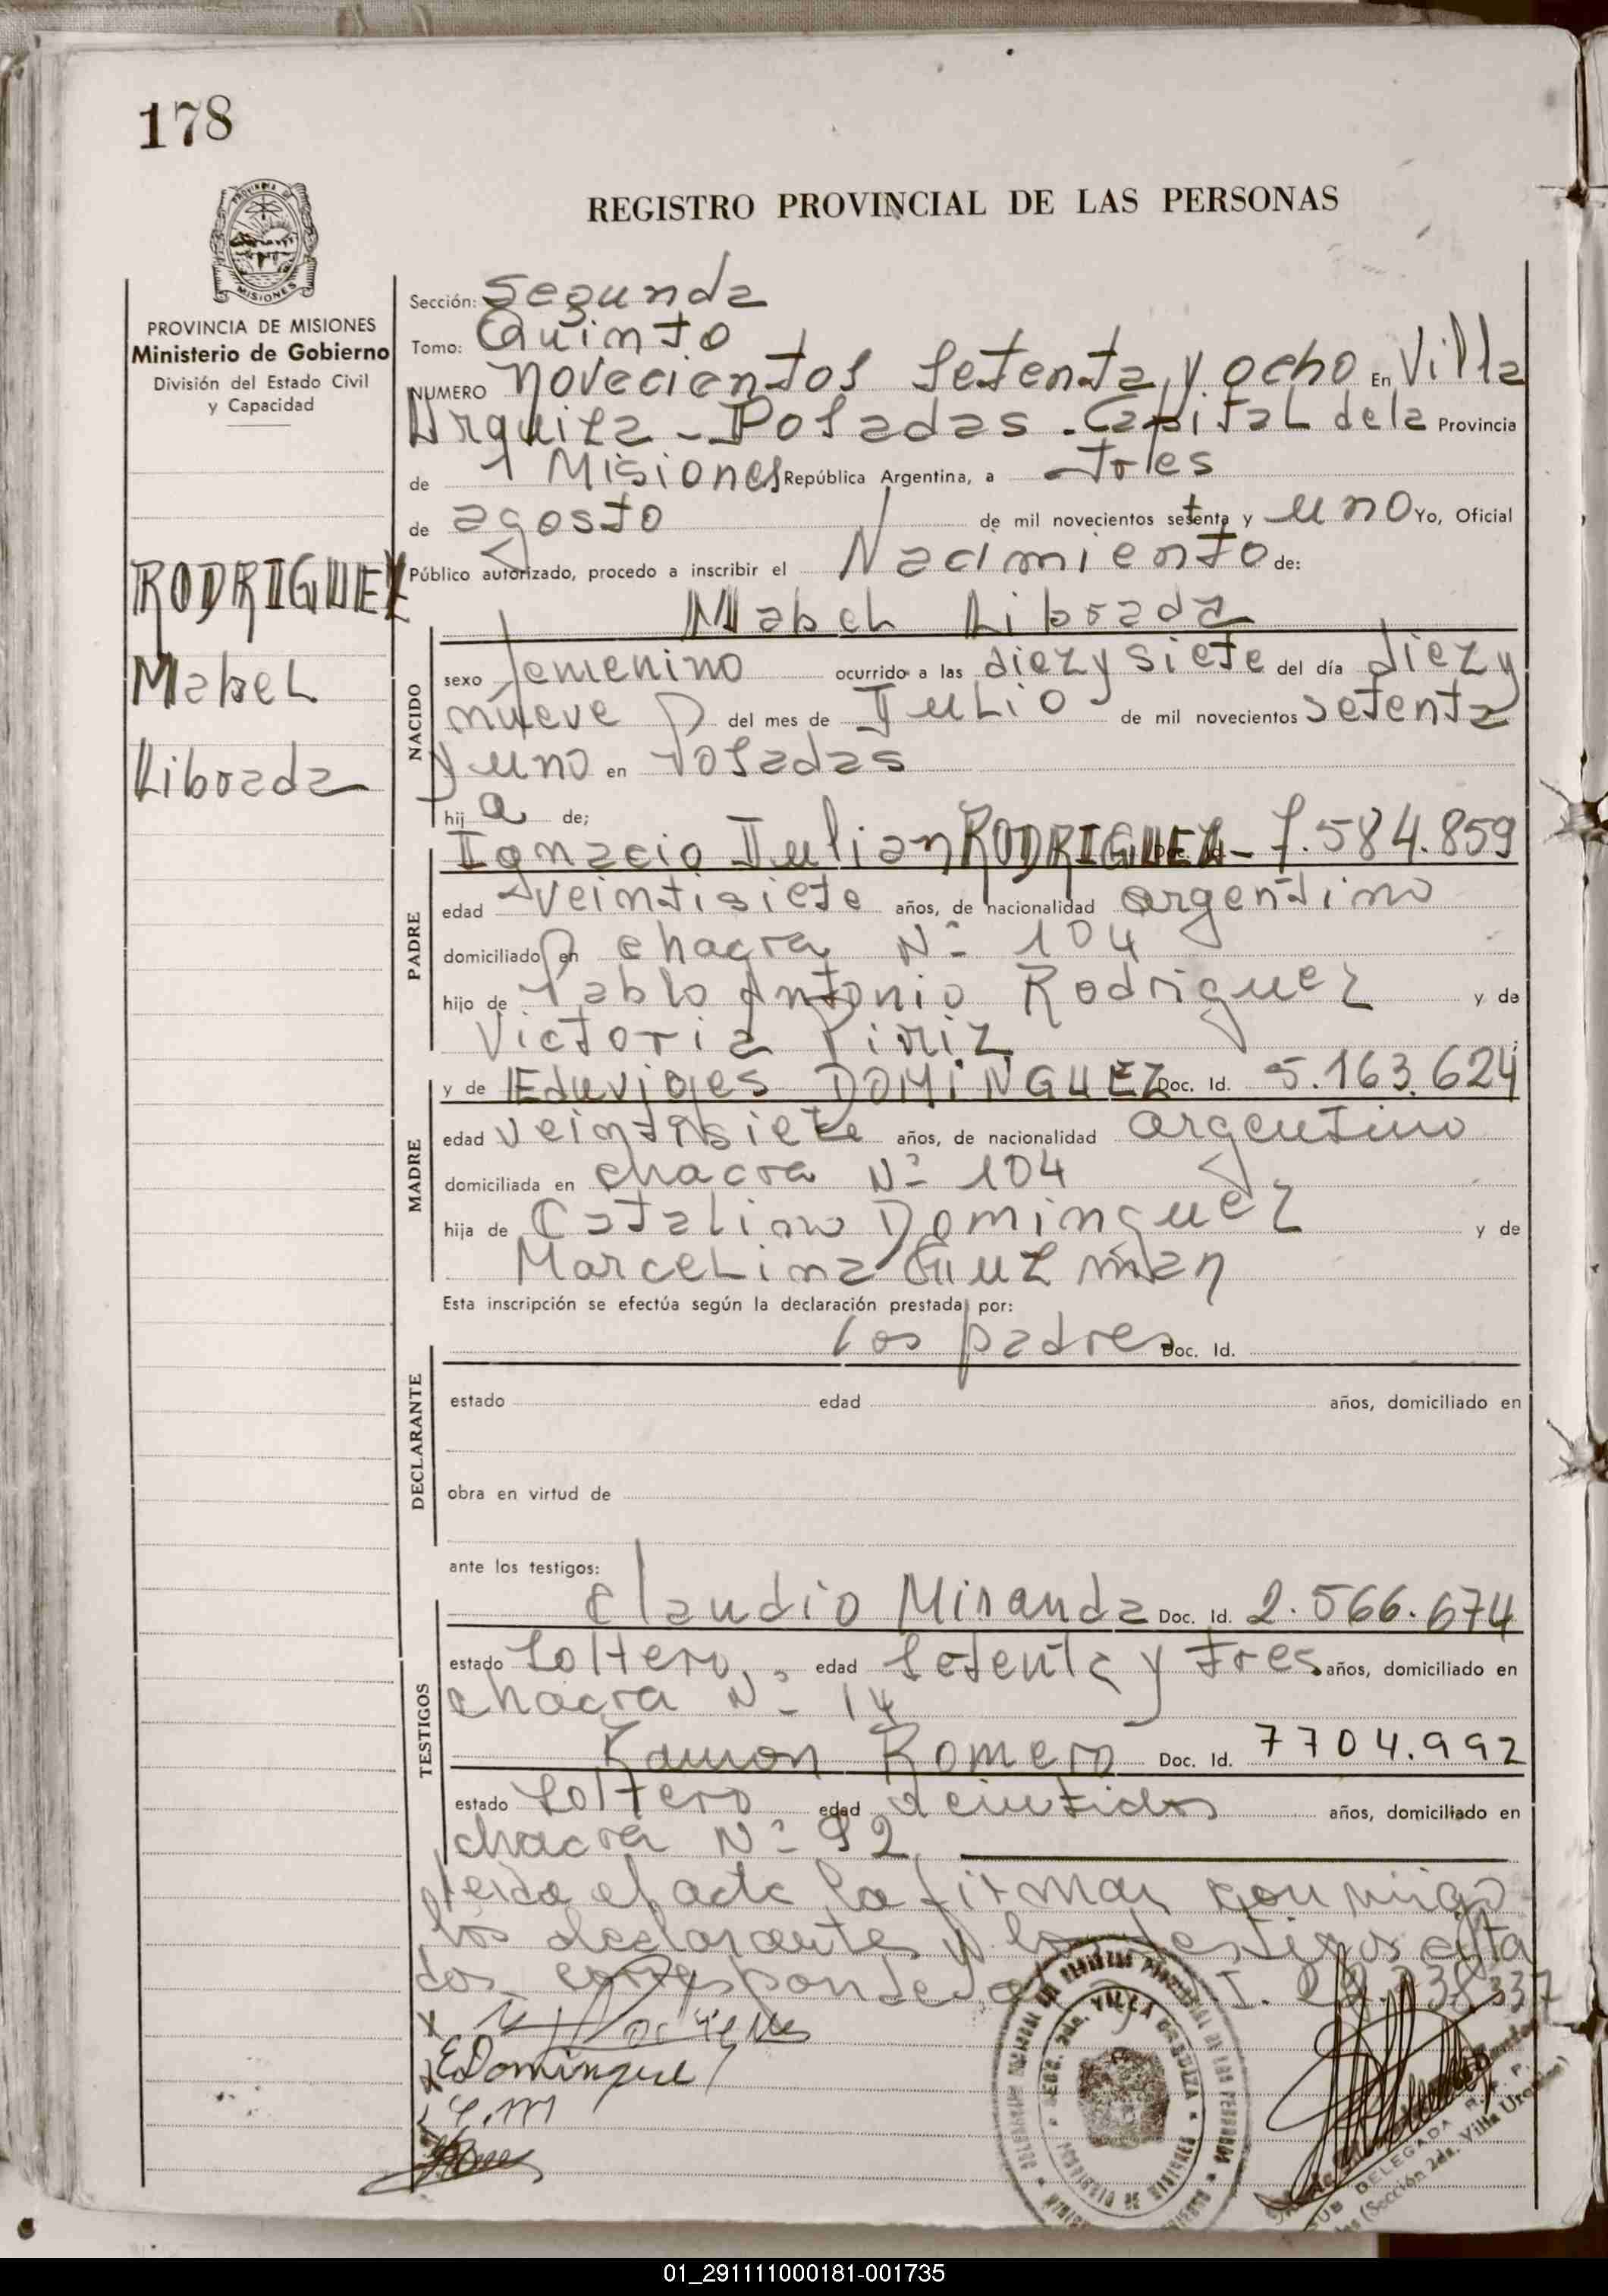 178
REGISTRO PROVINCIAL DE LAS PERSONAS
PROVINCIA DE
MISIONES
PROVINCIA DE MISIONES
Ministerio de Gobierno
División del Estado Civil
y Capacidad
RODRIGUEZ
Mabel
Librada
Sección: Segunda
Tomo: Quinto
NUMERO novecientos setenta y ocho En Villa
Urquiza - Posadas - Capital de la Provincia
de Misiones República Argentina, a tres
de agosto de mil novecientos setenta y uno Yo, Oficial
Público autorizado, procedo a inscribir el Nacimiento de:
Mabel Librada
NACIDO
sexo femenino ocurrido a las diez y siete del día diez y
nueve del mes de Julio de mil novecientos setenta
y uno en Posadas
hij a de;
PADRE
Ignacio Julian RODRIGUEZ Doc. Id. 7.584.859
edad veintisiete años, de nacionalidad argentino
domiciliado en chacra Nº 104
hijo de Pablo Antonio Rodriguez y de
Victoria Piriz
MADRE
y de Eduvijes DOMINGUEZ Doc. Id. 5.163.624
edad veintisiete años, de nacionalidad argentino
domiciliada en chacra Nº 104
hija de Catalino Dominguez y de
Marcelina Guzman
Esta inscripción se efectúa según la declaración prestada por:
DECLARANTE
los padres Doc. Id.
estado edad años, domiciliado en
obra en virtud de
ante los testigos:
TESTIGOS
Claudio Miranda Doc. Id. 2.566.674
estado Soltero edad setenta y tres años, domiciliado en
chacra Nº 14
Ramon Romero Doc. Id. 7704.992
estado Soltero edad veintidos años, domiciliado en
chacra Nº 92
leida el acta la firman conmigo
los declarantes y los testigos cita
dos corresponde
E Dominguez
C.M
SECC. 2da. VILLA URQUIZA
SUB DELEGADA R. P. P.
(Sección 2da. Villa Urquiza)
01_291111000181-001735